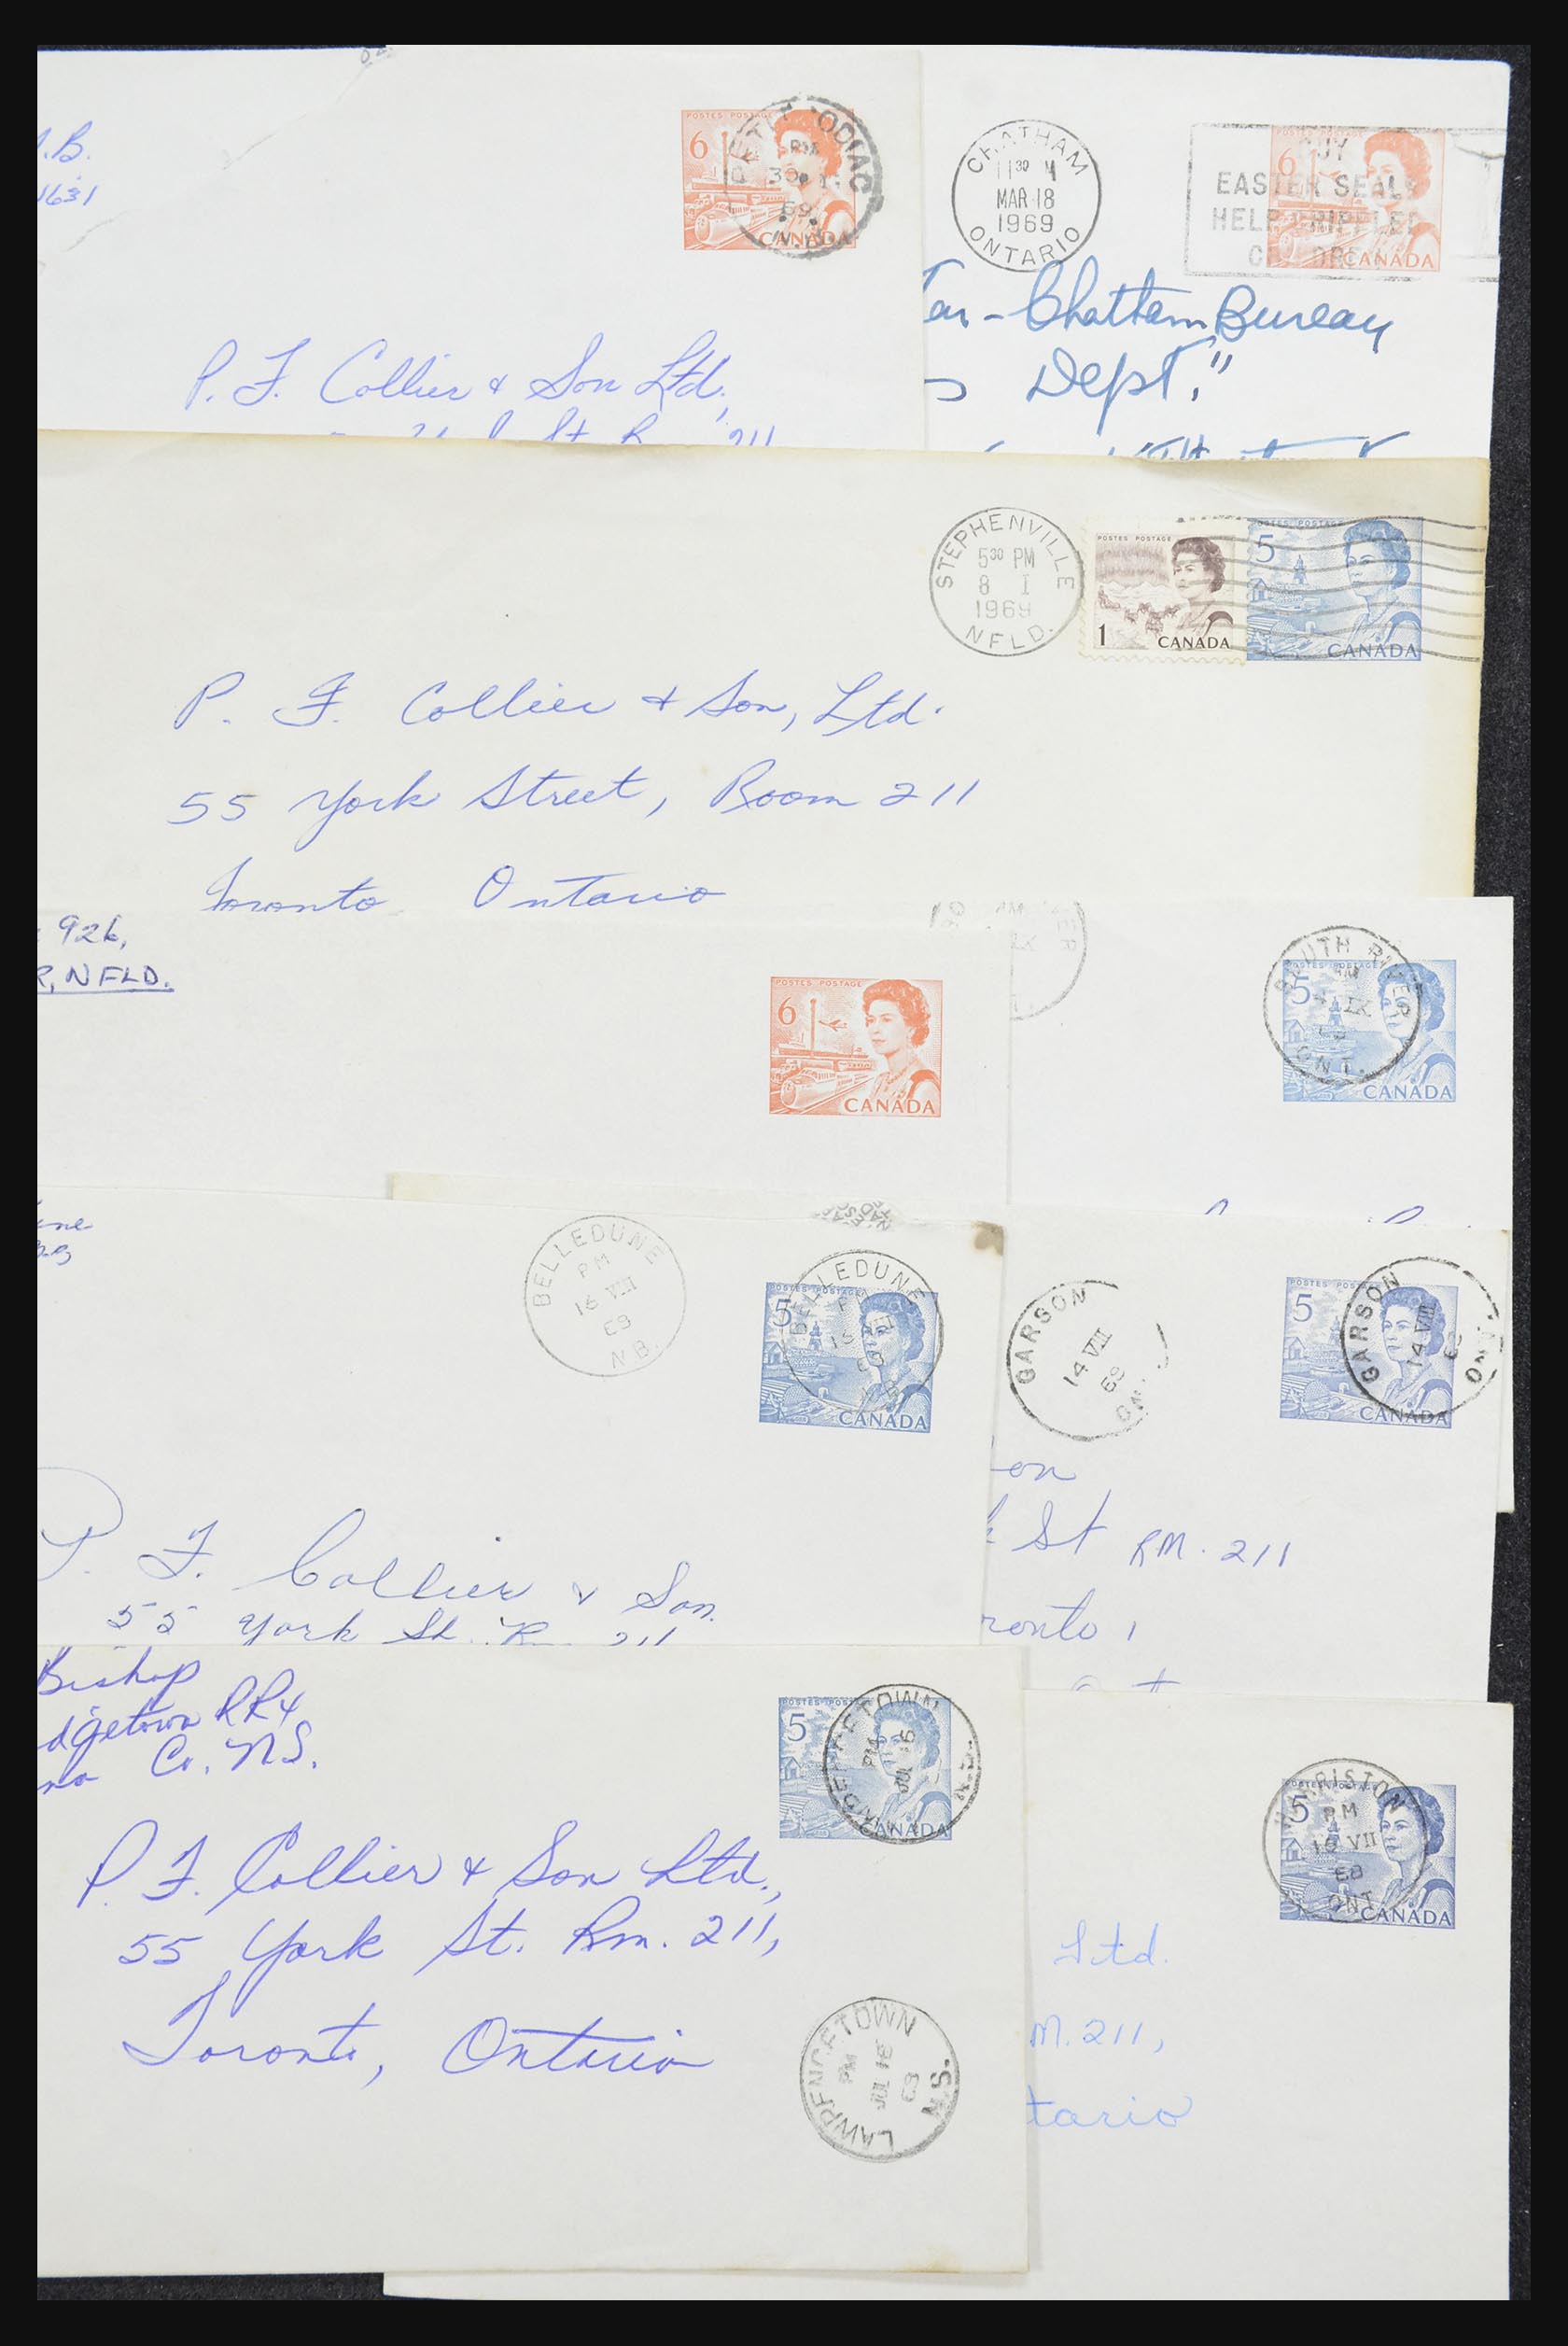 .B.
1631
POSTES POSTAGE
6
CANADA
ODIAC
PM
P. F. Collier & Son Ltd.,
St. R 211
CHATHAM
11 30
MAR 18
1969
ONTARIO
EASTER SEALS
HELP CRIPPLED
POSTES POSTAGE
CANADA
- Chatham Bureau
Dept."
STEPHENVILLE
5 30 PM
8 I
1969
NFLD.
POSTES POSTAGE
1 CANADA
POSTES POSTAGE
5
CANADA
P. F. Collier & Son, Ltd.
55 York Street, Room 211
Toronto Ontario
926,
R, NFLD.
POSTES POSTAGE
6
CANADA
SOUTH RIVER
IX
ONT.
5
CANADA
BELLEDUNE
PM
16 VIII
68
N.B.
POSTES POSTAGE
5
BELLEDUNE
CANADA
P. F. Collier & Son
55 York St. R 211
GARSON
14 VIII
68
ON
POSTES POSTAGE
5
GARSON
14 VIII
CANADA
on
St RM. 211
ronto 1
Bishop
dgetown RR4
Co. N.S.
POSTES POSTAGE
5
PM
JUL 16
CANADA
P. F. Collier & Son Ltd.,
55 York St. Rm. 211,
Toronto, Ontario
LAWRENCETOWN
PM
JUL 16
68
N.S.
POSTAGE
5
HARRISTON
PM
VII
68
ONT
CANADA
Ltd.
M. 211,
tario